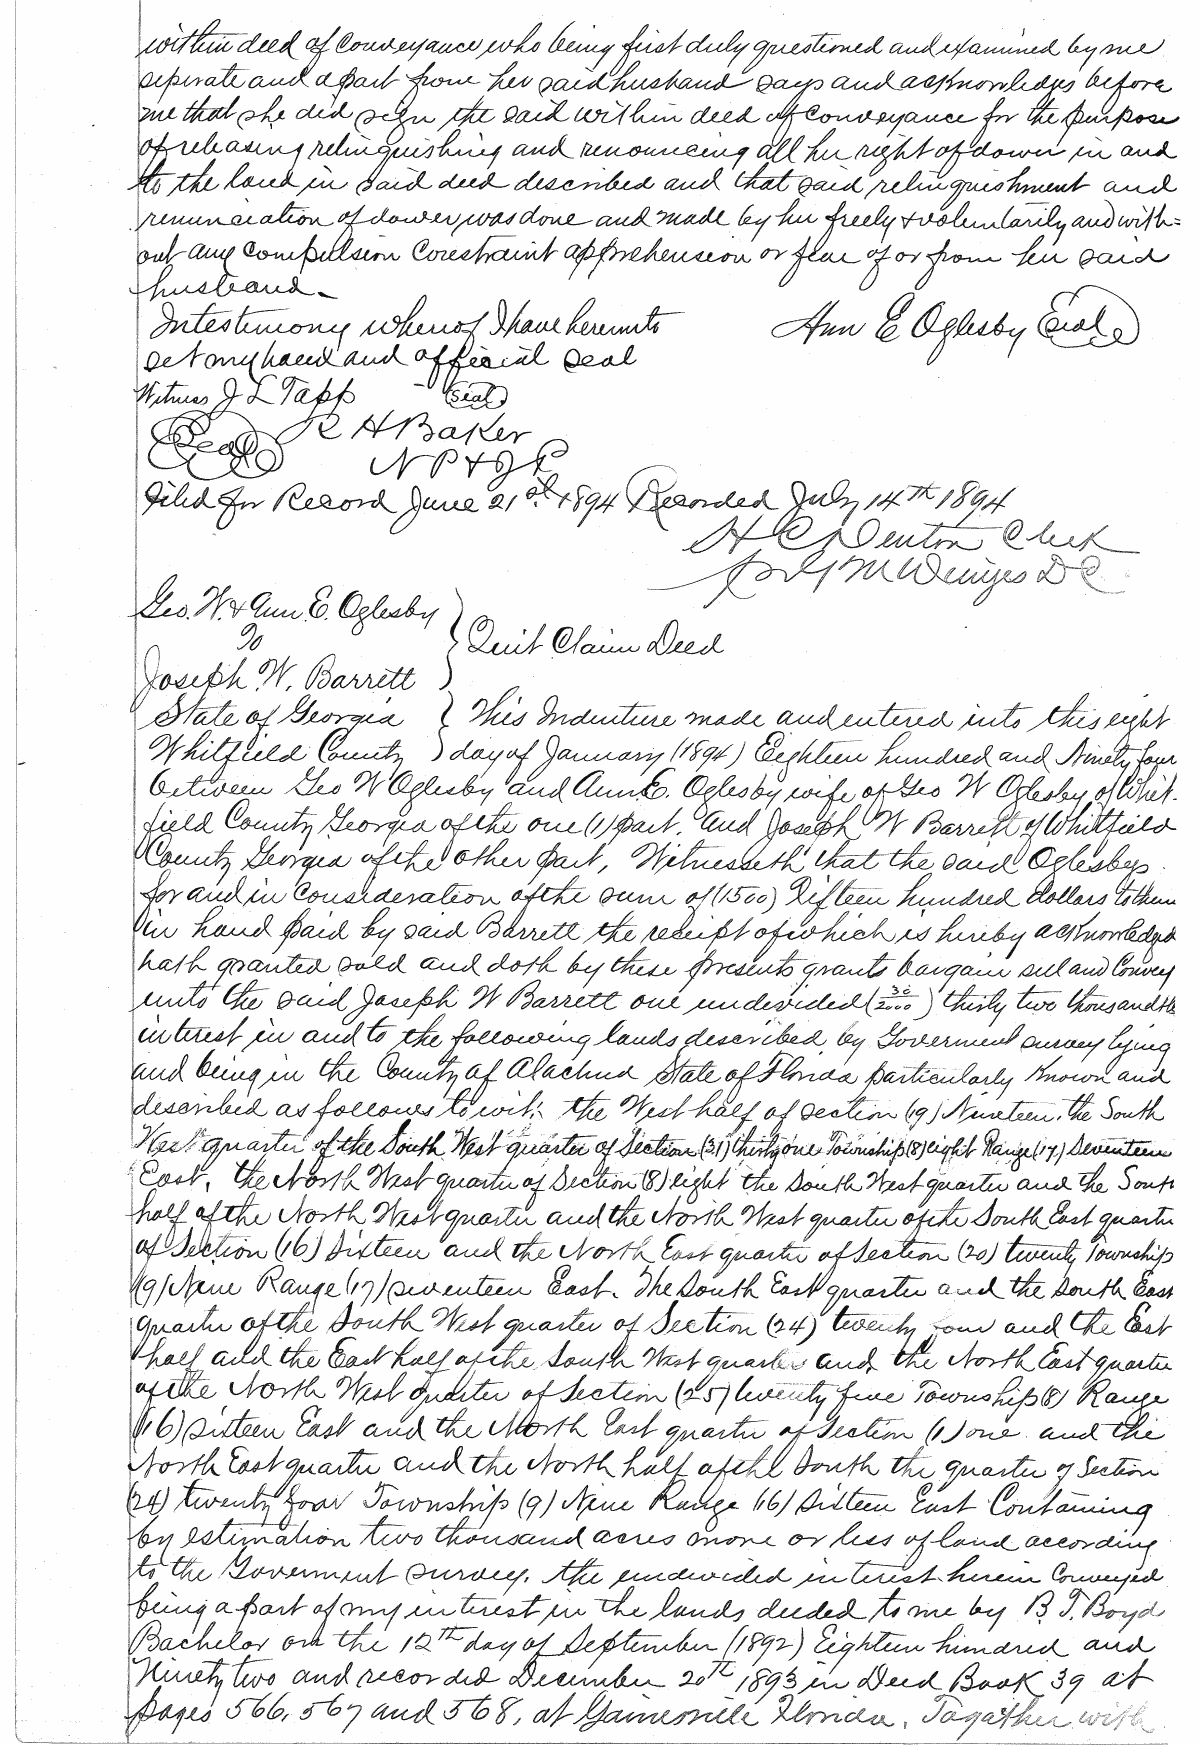 within deed of Conveyance who being first duly questioned and examined by me
seperate and apart from her said husband says and acknowledges before
me that she did sign the said within deed of Conveyance for the purpose
of releasing relinquishing and renouncing all her right of dower in and
to the land in said deed described and that said relinquishment and
renunciation of dower was done and made by her freely & voluntarily and with=
out any Compulsion Constraint apprehension or fear of or from her said
husband.
In testimony whereof I have hereunto
set my hand and official seal
Ann E Oglesby Seal
Witness J L Tapp (Seal)
Seal R H Baker
N P & J P
Filed for Record June 21st 1894 Recorded July 14th 1894
H C Denton Clerk
D C
Geo. W. & Ann. E. Oglesby
To } Quit Claim Deed
Joseph W. Barrett
State of Georgia } This Indenture made and entered into this eight
Whitfield County } day of January (1894) Eighteen hundred and Ninety four
between Geo W Oglesby and Ann E. Oglesby wife of Geo W Oglesby of Whit-
field County Georgia of the one (1) part. and Joseph W Barrett of Whitfield
County Georgia of the other part, Witnesseth that the said Oglesbys
for and in Consideration of the sum of (1500) Fifteen hundred dollars to them
in hand paid by said Barrett the receipt of which is hereby acknowledged
hath granted sold and doth by these presents grants bargain sell and Convey
unto the said Joseph W Barrett one undivided ( /2000) thirty two thousandth
interest in and to the following lands described by Goverment survey lying
and being in the County of Alachua State of Florida particularly Known and
described as follows to wit: the West half of section (19) Nineteen. the South
West quarter of the South West quarter of Section (31) thirty one Township (8) eight Range (17) Seventeen
East. the North West quarter of Section (8) eight the South West quarter and the South
half of the North West quarter and the North West quarter of the South East quarter
of Section (16) Sixteen and the North East quarter of Section (20) twenty Township
(9) Nine Range (17) seventeen East. The South East quarter and the South East
quarter of the South West quarter of Section (24) twenty four and the East
half and the East half of the South West quarter and the North East quarter
of the North West quarter of Section (25) twenty five Township (8) Range
(16) sixteen East and the North East quarter of Section (1) one and the
North East quarter and the North half of the South the quarter of Section
(24) twenty four Township (9) Nine Range (16) Sixteen East Containing
by estimation two thousand acres more or less of land according
to the Goverment survey. the undivided interest herein Conveyed
being a part of my interest in the lands deeded to me by B. T. Boyd
Bachelor on the 12th day of September (1892) Eighteen hundred and
Ninety two and recorded December 20th 1893 in Deed Book 39 at
pages 566, 567 and 568, at Gainesville Florida. Togather with